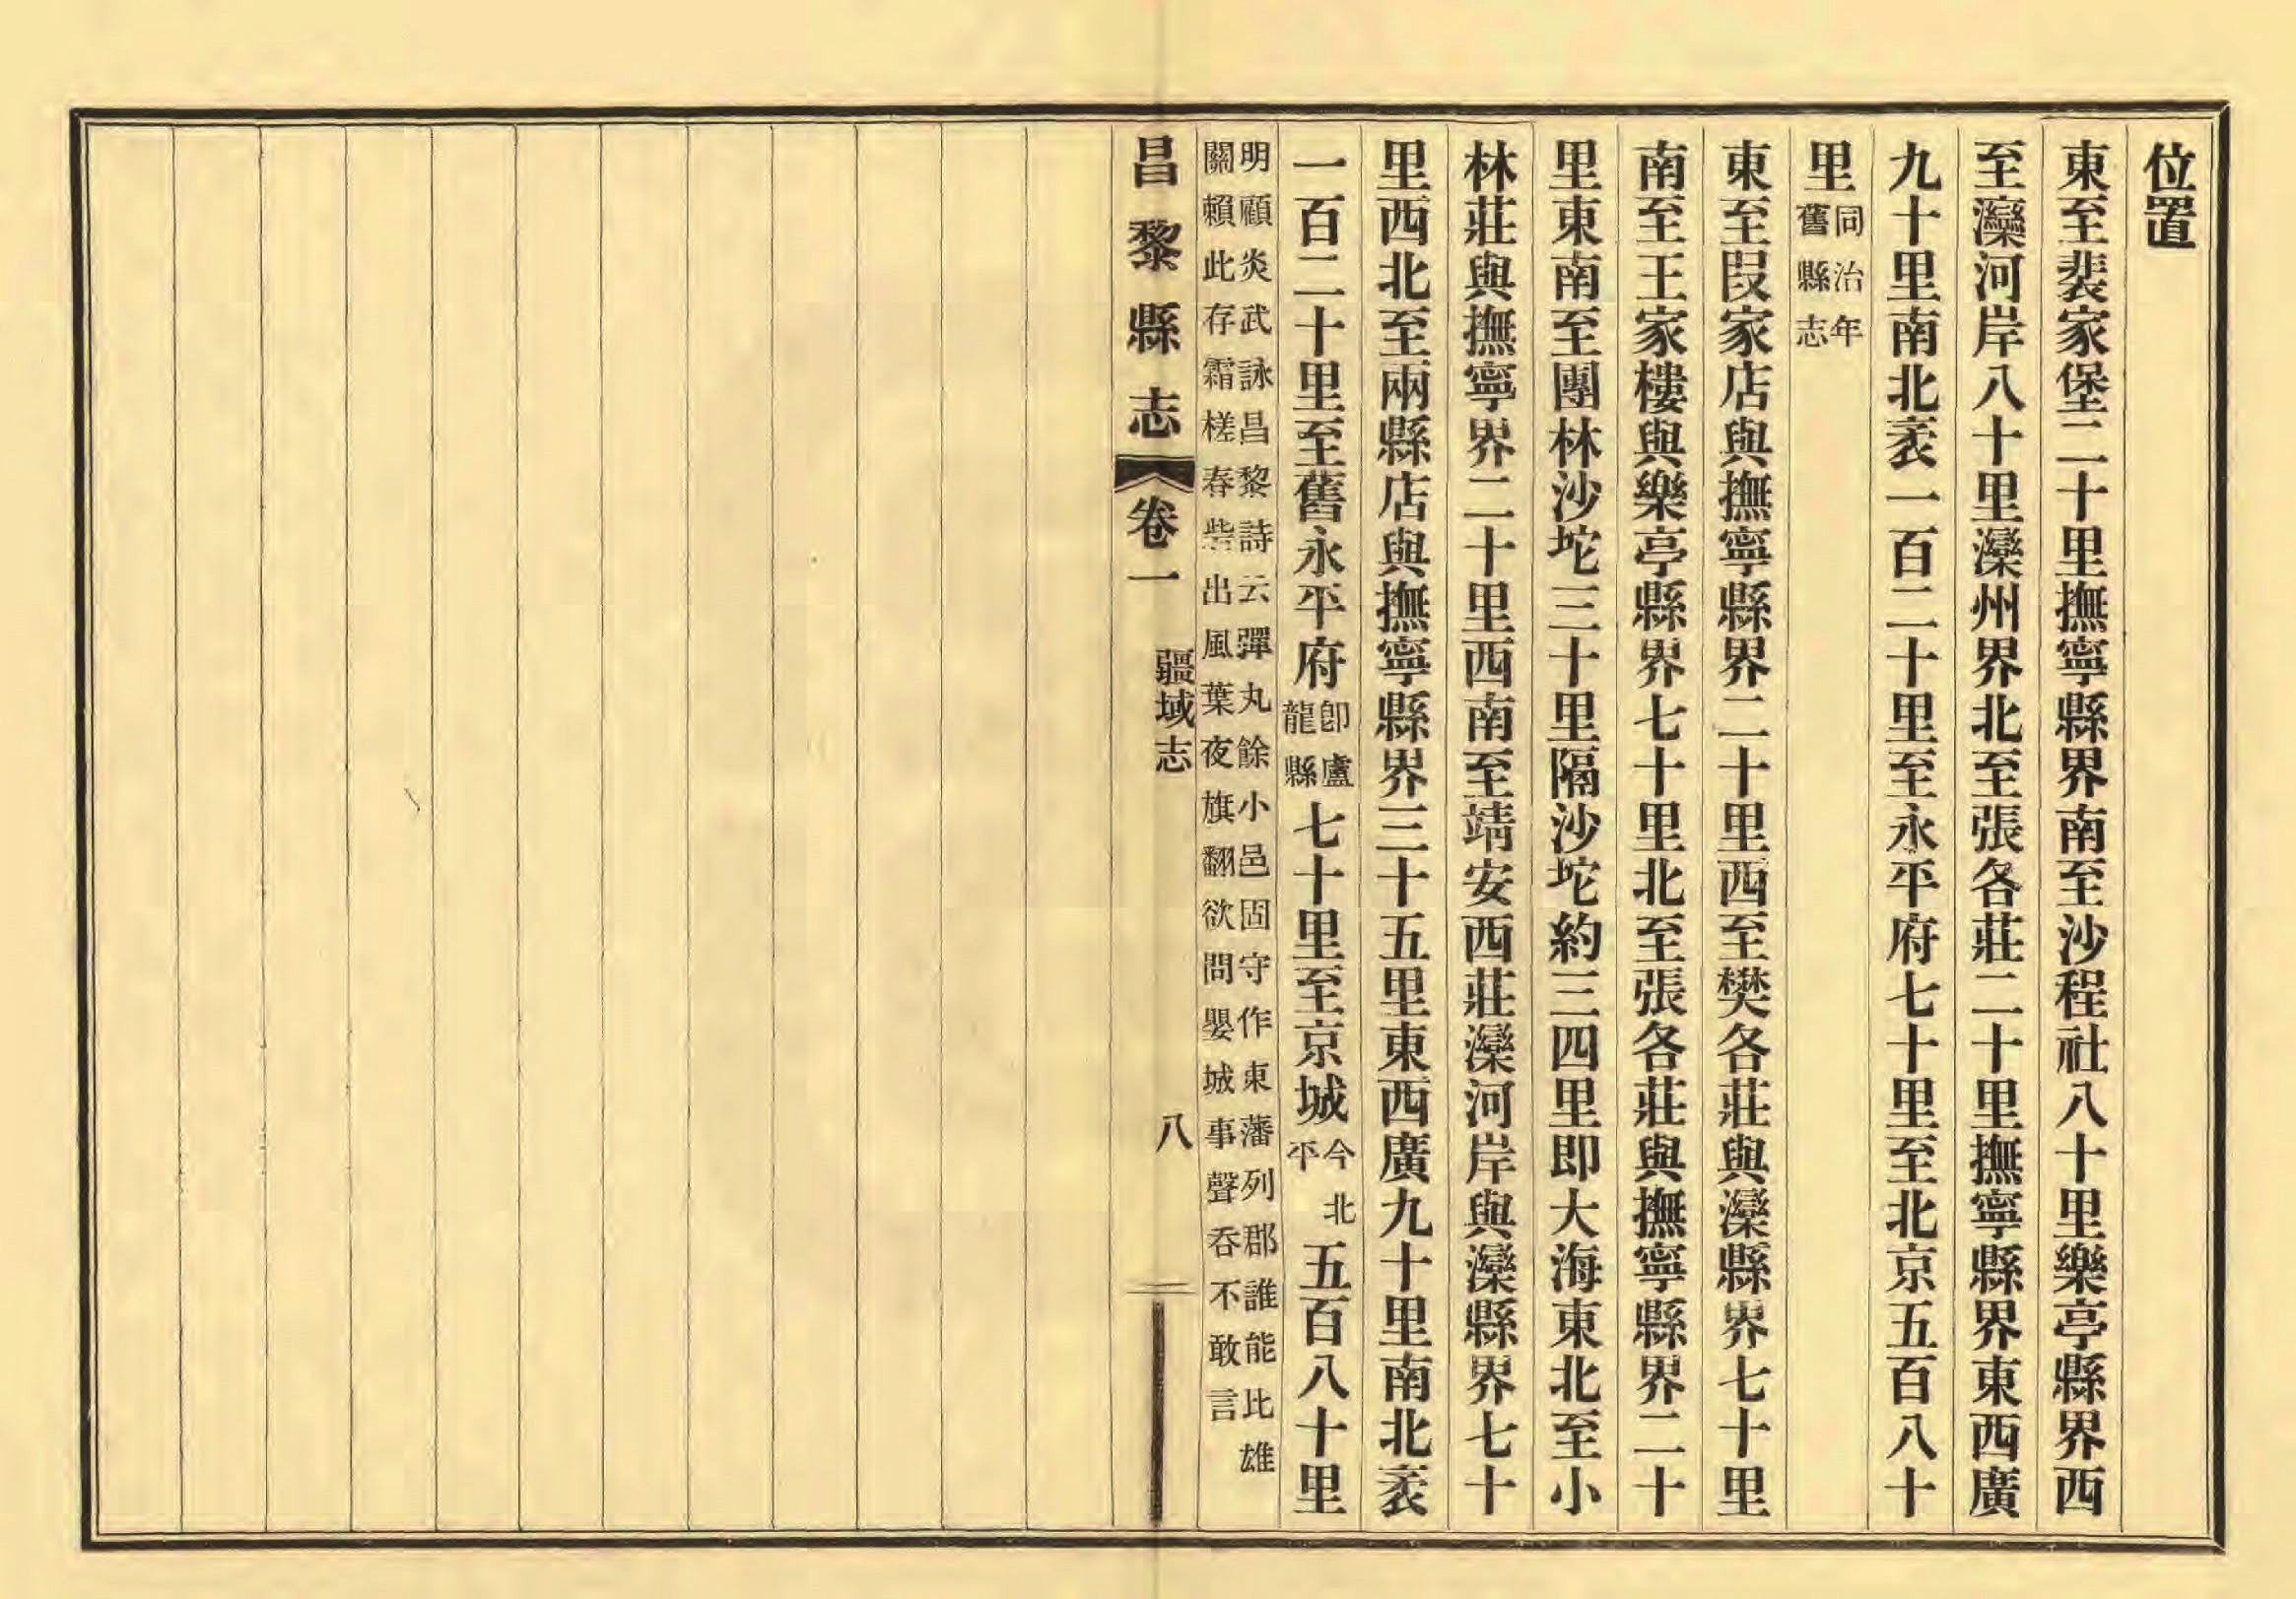 位置
東至裴家堡二十里撫寧縣界南至沙程社八十里樂亭縣界西
至灤河岸八十里灤州界北至張各莊二十里撫寧縣界東西廣
九十里南北袤一百二十里至永平府七十里至北京五百八十
里同治年舊縣志
東至叚家店與撫寧縣界二十里西至樊各莊與灤縣界七十里
南至王家樓與樂亭縣界七十里北至張各莊與撫寧縣界二十
里東南至團林沙坨三十里隔沙坨約三四里即大海東北至小
林莊與撫寧界二十里西南至靖安西莊灤河岸與灤縣界七十
里西北至兩縣店與撫寧縣界三十五里東西廣九十里南北袤
一百二十里至舊永平府卽盧龍縣七十里至京城今北平五百八十里
明顧炎武詠昌黎詩云彈丸餘小邑固守作東藩列郡誰能比雄
關賴此存霜槎春砦出風葉夜旗翻欲問嬰城事聲吞不敢言
昌黎縣志 卷一 疆域志 八